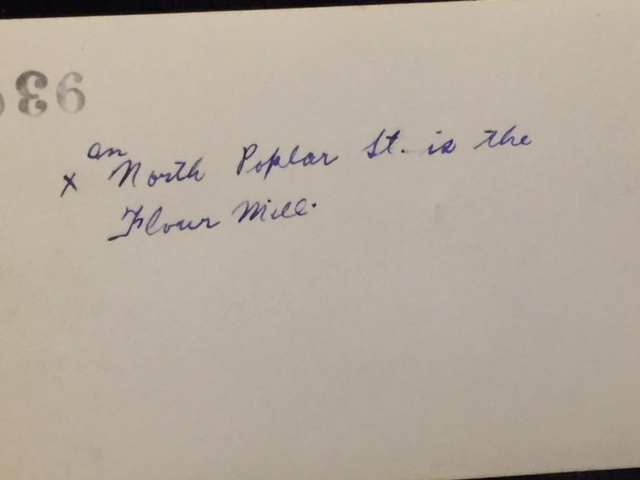 on
x North Poplar St. is the
Flour Mill.